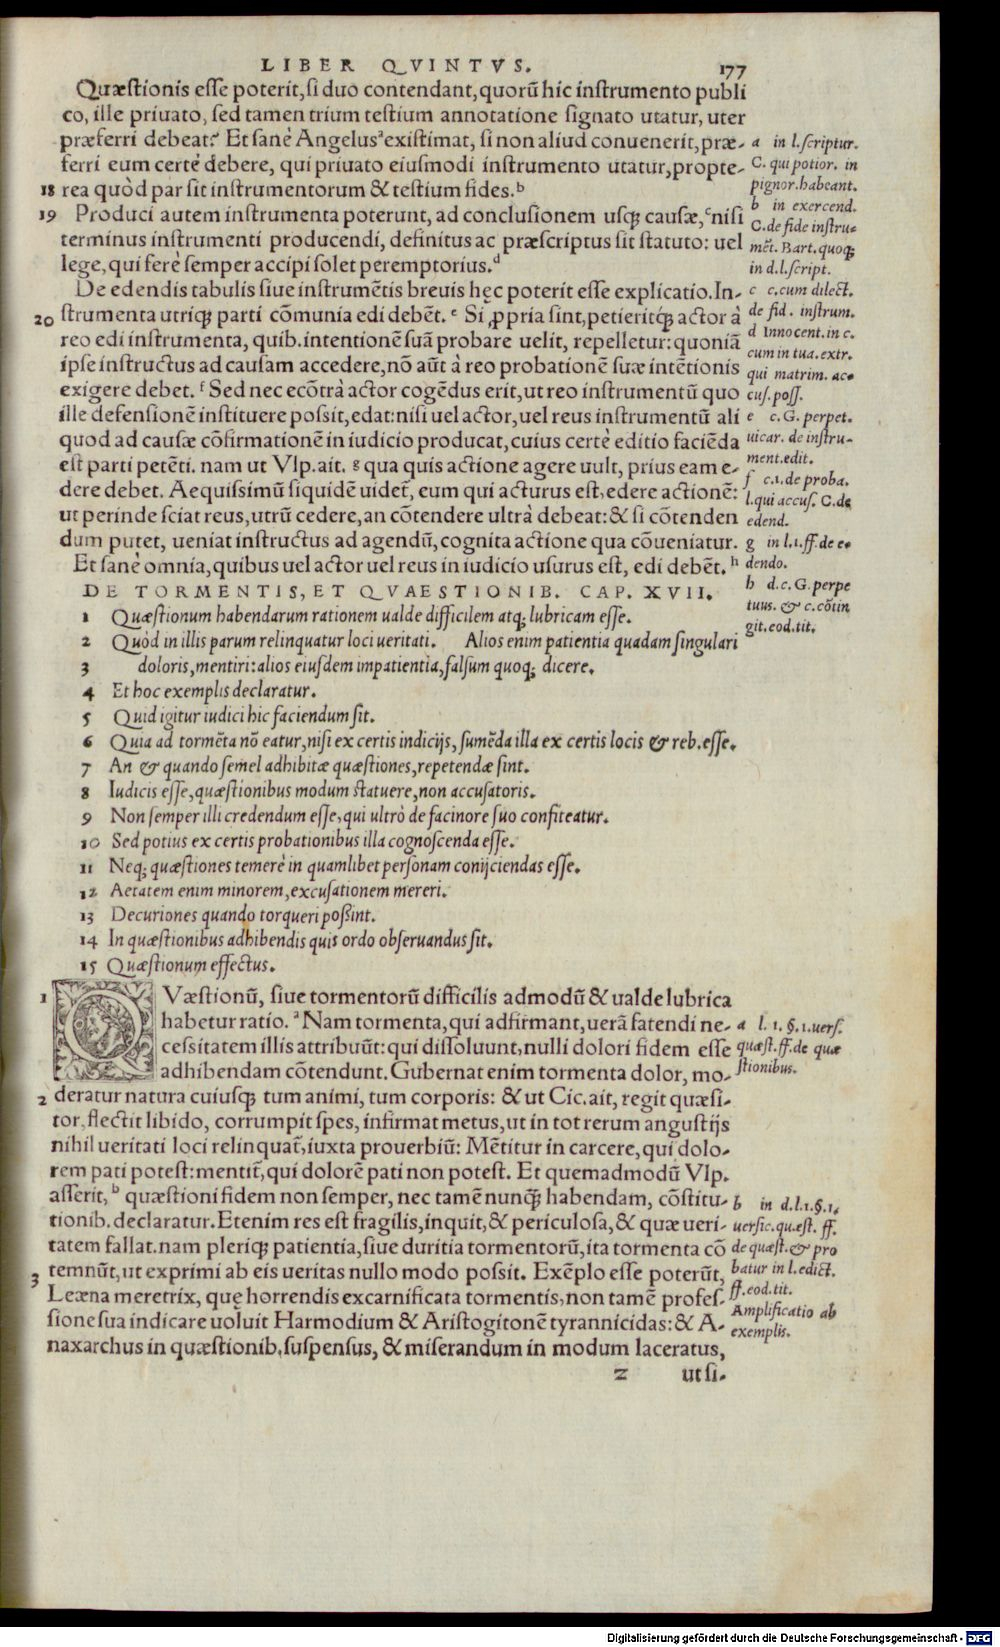 LIBER QVINTVS. 177
Quæstionis esse poterit, si duo contendant, quorũ hic instrumento publi
co, ille priuato, sed tamen trium testium annotatione signato utatur, uter
præferri debeat? Et sanè Angelus ᵃ existimat, si non aliud conuenerit, præ-
ferri eum certè debere, qui priuato eiusmodi instrumento utatur, propte-
18 rea quòd par sit instrumentorum & testium fides. ᵇ
19 Produci autem instrumenta poterunt, ad conclusionem usq; causæ, ᶜ nisi
terminus instrumenti producendi, definitus ac præscriptus sit statuto: uel
lege, qui ferè semper accipi solet peremptorius. ᵈ
De edendis tabulis siue instrumẽtis breuis hęc poterit esse explicatio. In-
20 strumenta utriq; parti cõmunia edi debẽt. ᵉ Si ꝓpria sint, petieritq́; actor à
reo edi instrumenta, quib. intentionẽ suã probare uelit, repelletur: quoniã
ipse instructus ad causam accedere, nõ aũt à reo probationẽ suæ intẽtionis
exigere debet. ᶠ Sed nec ecõtrà actor cogẽdus erit, ut reo instrumentũ quo
ille defensionẽ instituere possit, edat: nisi uel actor, uel reus instrumentũ ali
quod ad causæ cõfirmationẽ in iudicio producat, cuius certè editio faciẽda
est parti petẽti. nam ut Vlp. ait. ᵍ qua quis actione agere uult, prius eam e-
dere debet. Aequissimũ siquidẽ uidet̃, eum qui acturus est, edere actionẽ:
ut perinde sciat reus, utrũ cedere, an cõtendere ultrà debeat: & si cõtenden
dum putet, ueniat instructus ad agendũ, cognita actione qua cõueniatur.
Et sanè omnia, quibus uel actor uel reus in iudicio usurus est, edi debẽt. ʰ
a in l. scriptur.
C. qui potior. in
pignor. habeant.
b in exercend.
C. de fide instru-
mẽt. Bart. quoq;
in d. l. script.
c c. cum dilect.
de fid. instrum.
d Innocent. in c.
cum in tua. extr.
qui matrim. ac-
cus. poss.
e c. G. perpet.
uicar. de instru-
ment. edit.
f c. 1. de proba.
l. qui accus. C. de
edend.
g in l. 1. ff. de e-
dendo.
h d. c. G. perpe
tuus. & c. cõtin
git. eod. tit.
DE TORMENTIS, ET QVAESTIONIB. CAP. XVII.
1 Quæstionum habendarum rationem ualde difficilem atq; lubricam esse.
2 Quòd in illis parum relinquatur loci ueritati. Alios enim patientia quadam singulari
3 doloris, mentiri: alios eiusdem impatientia, falsum quoq; dicere.
4 Et hoc exemplis declaratur.
5 Quid igitur iudici hic faciendum sit.
6 Quia ad tormẽta nõ eatur, nisi ex certis indicijs, sumẽda illa ex certis locis & reb. esse.
7 An & quando semel adhibitæ quæstiones, repetendæ sint.
8 Iudicis esse, quæstionibus modum statuere, non accusatoris.
9 Non semper illi credendum esse, qui ultrò de facinore suo confiteatur.
10 Sed potius ex certis probationibus illa cognoscenda esse.
11 Neq; quæstiones temerè in quamlibet personam conijciendas esse.
12 Aetatem enim minorem, excusationem mereri.
13 Decuriones quando torqueri possint.
14 In quæstionibus adhibendis quis ordo obseruandus sit.
15 Quæstionum effectus.
1 QVæstionũ, siue tormentorũ difficilis admodũ & ualde lubrica
habetur ratio. ᵃ Nam tormenta, qui adfirmant, uerã fatendi ne-
cessitatem illis attribuũt: qui dissoluunt, nulli dolori fidem esse
adhibendam cõtendunt. Gubernat enim tormenta dolor, mo-
2 deratur natura cuiusq; tum animi, tum corporis: & ut Cic. ait, regit quæsi-
tor, flectit libido, corrumpit spes, infirmat metus, ut in tot rerum angustijs
nihil ueritati loci relinquat̃, iuxta prouerbiũ: Mẽtitur in carcere, qui dolo-
rem pati potest: mentit̃, qui dolorẽ pati non potest. Et quemadmodũ Vlp.
asserit, ᵇ quæstioni fidem non semper, nec tamẽ nunq̃ habendam, cõstitu-
tionib. declaratur. Etenim res est fragilis, inquit, & periculosa, & quæ ueri-
tatem fallat. nam pleriq; patientia, siue duritia tormentorũ, ita tormenta cõ
temnũt, ut exprimi ab eis ueritas nullo modo possit. Exẽplo esse poterũt,
3 Leæna meretrix, quę horrendis excarnificata tormentis, non tamẽ profes-
sione sua indicare uoluit Harmodium & Aristogitonẽ tyrannicidas: & A-
naxarchus in quæstionib. suspensus, & miserandum in modum laceratus,
a l. 1. §. 1. uers.
quæst. ff. de quæ
stionibus.
b in d. l. 1. §. 1.
uersic. quæst. ff.
de quæst. & pro
batur in l. edict.
ff. eod. tit.
Amplificatio ab
exemplis.
z ut si-
Digitalisierung gefördert durch die Deutsche Forschungsgemeinschaft - DFG